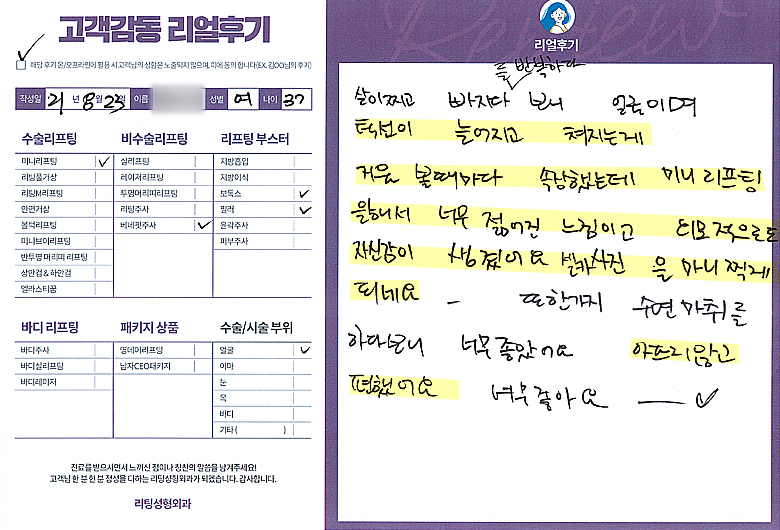 고객감동 리얼후기
해당 후기 온/오프라인에 활용 시 고객님의 성함은 노출되지 않으며, 이에 동의 합니다(EX. 김OO님의 후기)
작성일 21년 8월 23일 이름 성별 여 나이 37
수술리프팅 비수술리프팅 리프팅 부스터
미니리프팅 실리프팅 지방흡입
리팅풀거상 레이저리프팅 지방이식
리팅M리프팅 투명머리띠리프팅 보톡스
안면거상 리팅주사 필러
볼턱리프팅 베네핏주사 윤곽주사
미니브이리프팅 피부주사
반투명 머리띠 리프팅
상안검 & 하안검
엘라스티꿈
바디 리프팅 패키지 상품 수술/시술 부위
바디주사 영데이리프팅 얼굴
바디실리프팅 남자CEO패키지 이마
바디레이저 눈
목
바디
기타 ( )
진료를 받으시면서 느끼신 점이나 칭찬의 말씀을 남겨주세요!
고객님 한 분 한 분 정성을 다하는 리팅성형외과가 되겠습니다. 감사합니다.
리팅성형외과
Review
리얼후기
를 반복하다
살이찌고 빠지다 보니 얼굴이며
턱선이 늘어지고 쳐지는게
거울 볼때마다 속상했는데 미니리프팅
을해서 너무 젊어진 느낌이고 외모적으로도
자신감이 생겼어요 셀카사진 을 마니 찍게
되네요 _ 또한가지 수면 마취를
하다보니 너무좋았어요 아프지않고
편했어요 너무좋아요 —